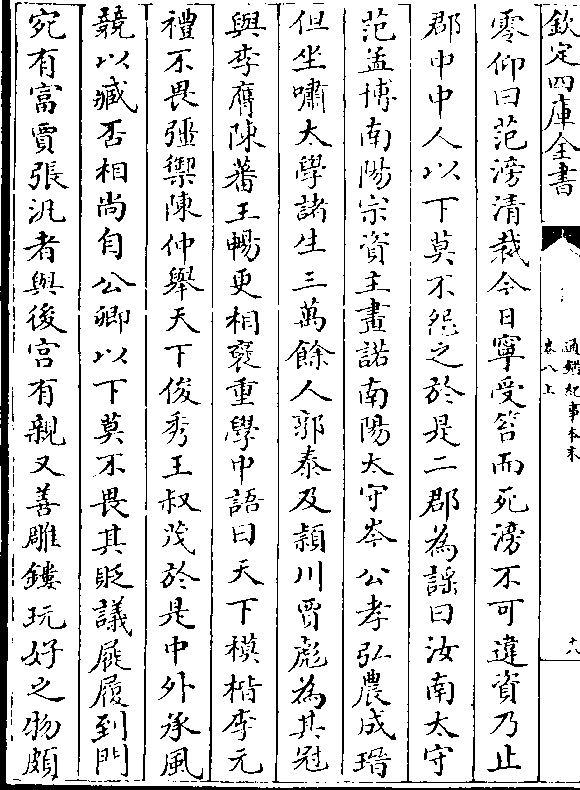 欽定四庫全書
通鑑紀事本末
卷八上
十八
零仰曰范滂清裁今日寧受笞而死滂不可違資乃止
郡中中人以下莫不怨之於是二郡為謡曰汝南太守
范孟博南陽宗資主畫諾南陽太守岑公孝弘農成瑨
但坐嘯太學諸生三萬餘人郭泰及潁川賈彪為其冠
與李膺陳蕃王暢更相褒重學中語曰天下模楷李元
禮不畏彊禦陳仲舉天下俊秀王叔茂於是中外承風
競以臧否相尚自公卿以下莫不畏其貶議屣履到門
宛有富賈張汎者與後宫有親又善雕鏤玩好之物頗